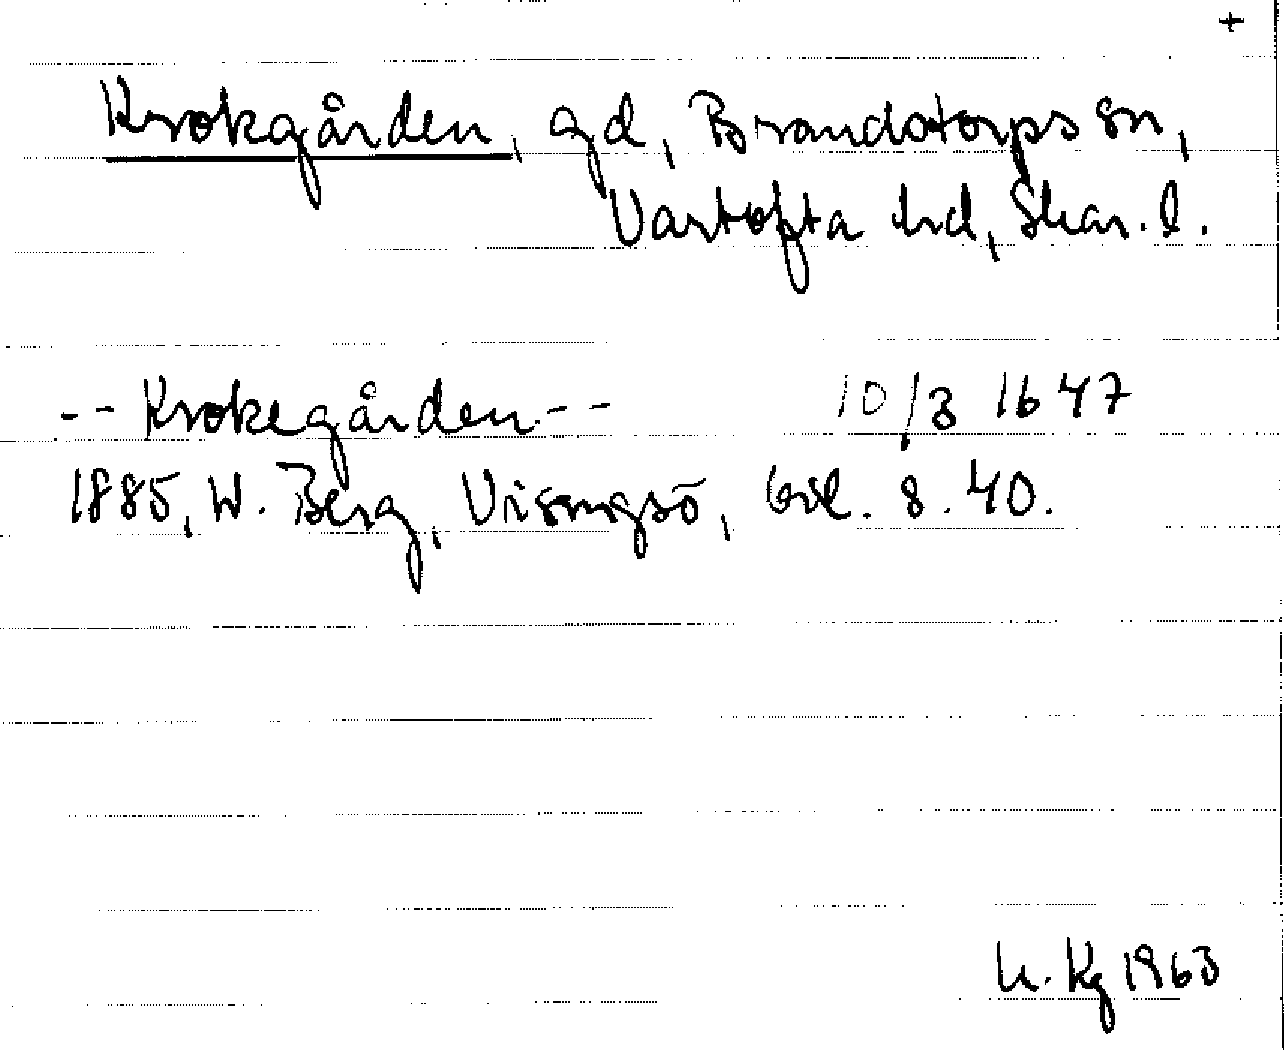 +
Krokgården, gd, Brandstorps sn,
Vartofta hd, Skar. l.
-- Krokegården -- 10/3 1647
1885, W. Berg, Visingsö, bil. s. 40.
U. Kg 1963